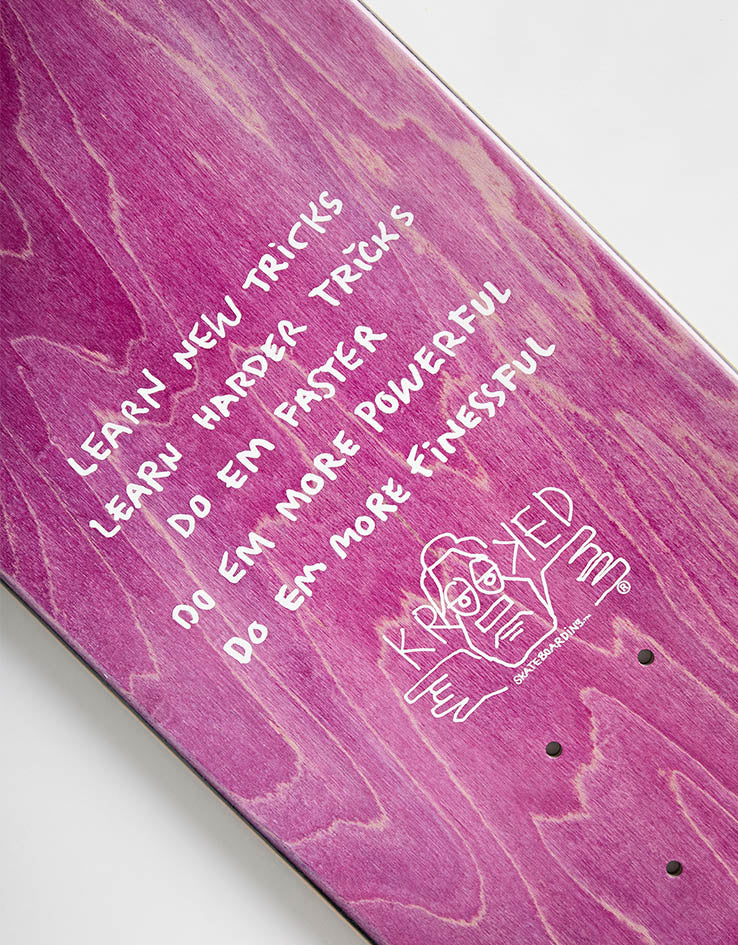 LEARN NEW TRICKS
LEARN HARDER TRICKS
DO EM FASTER
DO EM MORE POWERFUL
DO EM MORE FINESSFUL
KROOKED
®
SKATEBOARDING